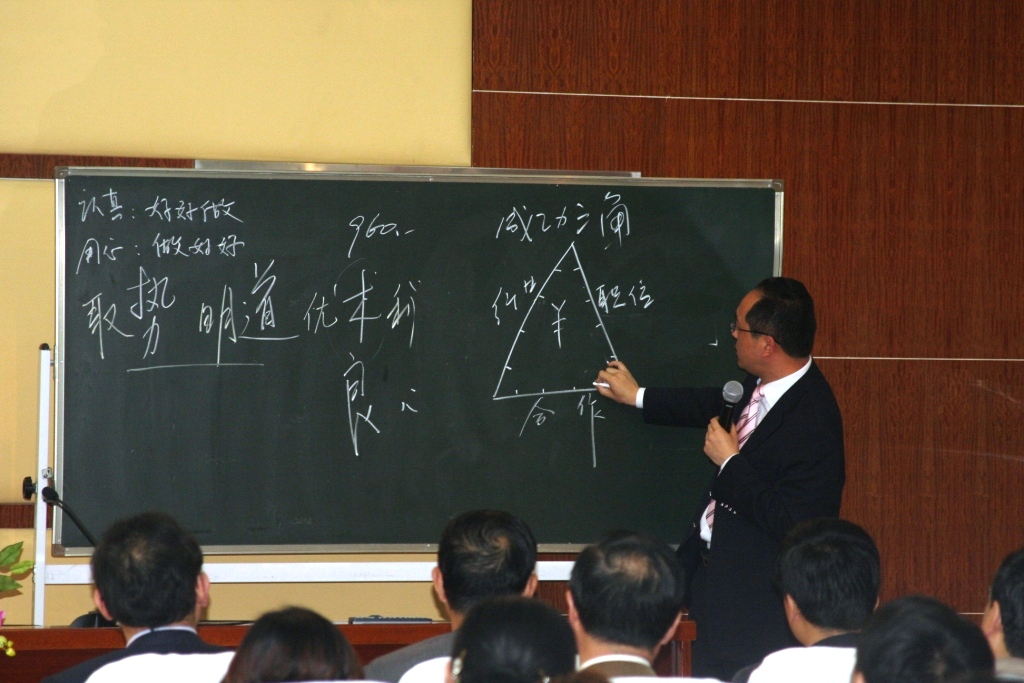 认真：好好做
用心：做好
取势 明道 优 本 科
良 心
960.-
成功三角
职位
¥
合作